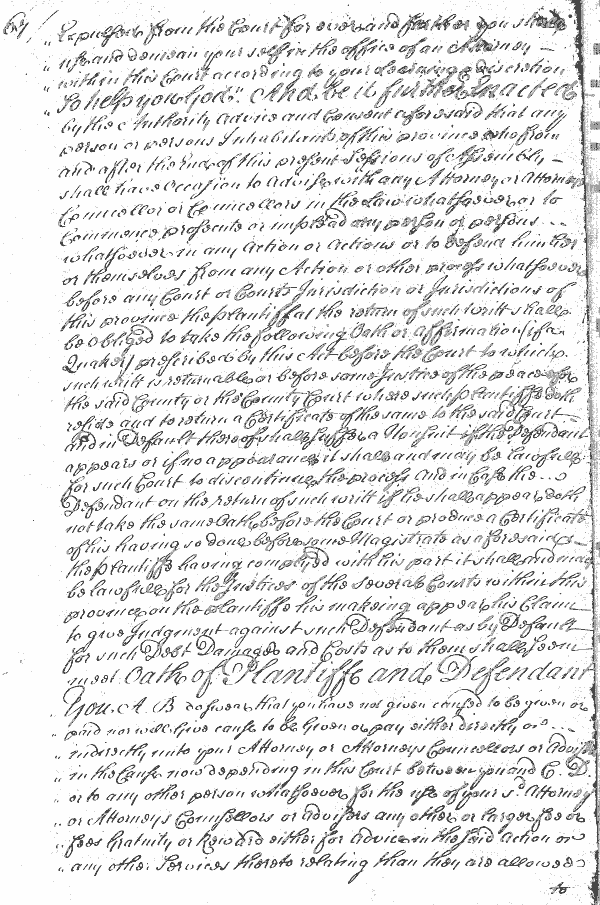 67/ Expulsion from the Court for ever and further you shall
" use and demean your self in the office of an Attorney
" within this Court according to your learning & discretion
" So help you God." And be it further Enacted
by the Authority advice and Consent aforesaid that any
person or persons Inhabitants of this province who from
and after the End of this present Sessions of Assembly
shall have Occasion to Advise with any Attorney or Attorneys
Councellor or Councellors in the Law whatsoever or to
Commence prosecute or implead any person or persons
whatsoever in any action or actions or to defend him her
or themselves from any Action or other process whatsoever
before any Court or Courts Jurisdiction or Jurisdictions of
this province the plantiff at the return of such writt shall
be obliged to take the following Oath or affirmation (if a
Quaker) prescribed by this Act before the Court to which
such writt is returnable or before some Justice of the peace of
the said County or the County Court where such plantiffe doth
reside and to return a Certificate of the same to the said Court
and in Default thereof shall suffer a Nonsuit if the Defendant
appears or if no appearance it shall and may be lawfull
for such Court to discontinue the process And in Case the
Defendant on the return of such writt if he shall appear doth
not take the same Oath before the Court or produce a Certificate
of his having so done before some Magistrate as aforesaid
the plantiffe having complyed with his part it shall and may
be lawfull for the Justices of the severall Courts within this
province on the plantiffe his makeing appear his Claim
to give Judgment against such Defendant as by Default
for such Debt Damages and Costs as to them shall seem
meet. Oath of Plantiffe and Defendant
You A B do swear that you have not given caused to be given or
" paid nor will Give cause to be Given or pay either directly or
" indirectly unto your Attorney or Attorneys Councellors or advisers
" in the Cause now depending in this Court between you and C. D.
" or to any other person whatsoever for the use of your sd. Attorney
" or Attorneys Counsellors or advisors any other or larger fee or
" fees Gratuity or Reward either for Advice in the said action or
" any other Services thereto relating than they are allowed
to